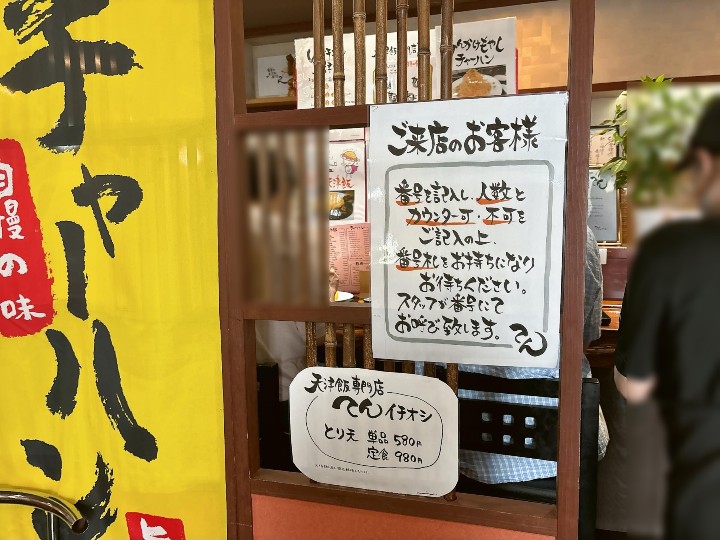 チャーハン
自慢の味
んかけもやし
チャーハン
ご来店のお客様
番号を記入し、人数と
カウンター可・不可を
ご記入の上、
番号札をお持ちになり
お待ちください。
スタッフが番号にて
お呼び致します。
てん
天津飯専門店
てんイチオシ
とり天 単品 580円
定食 980円